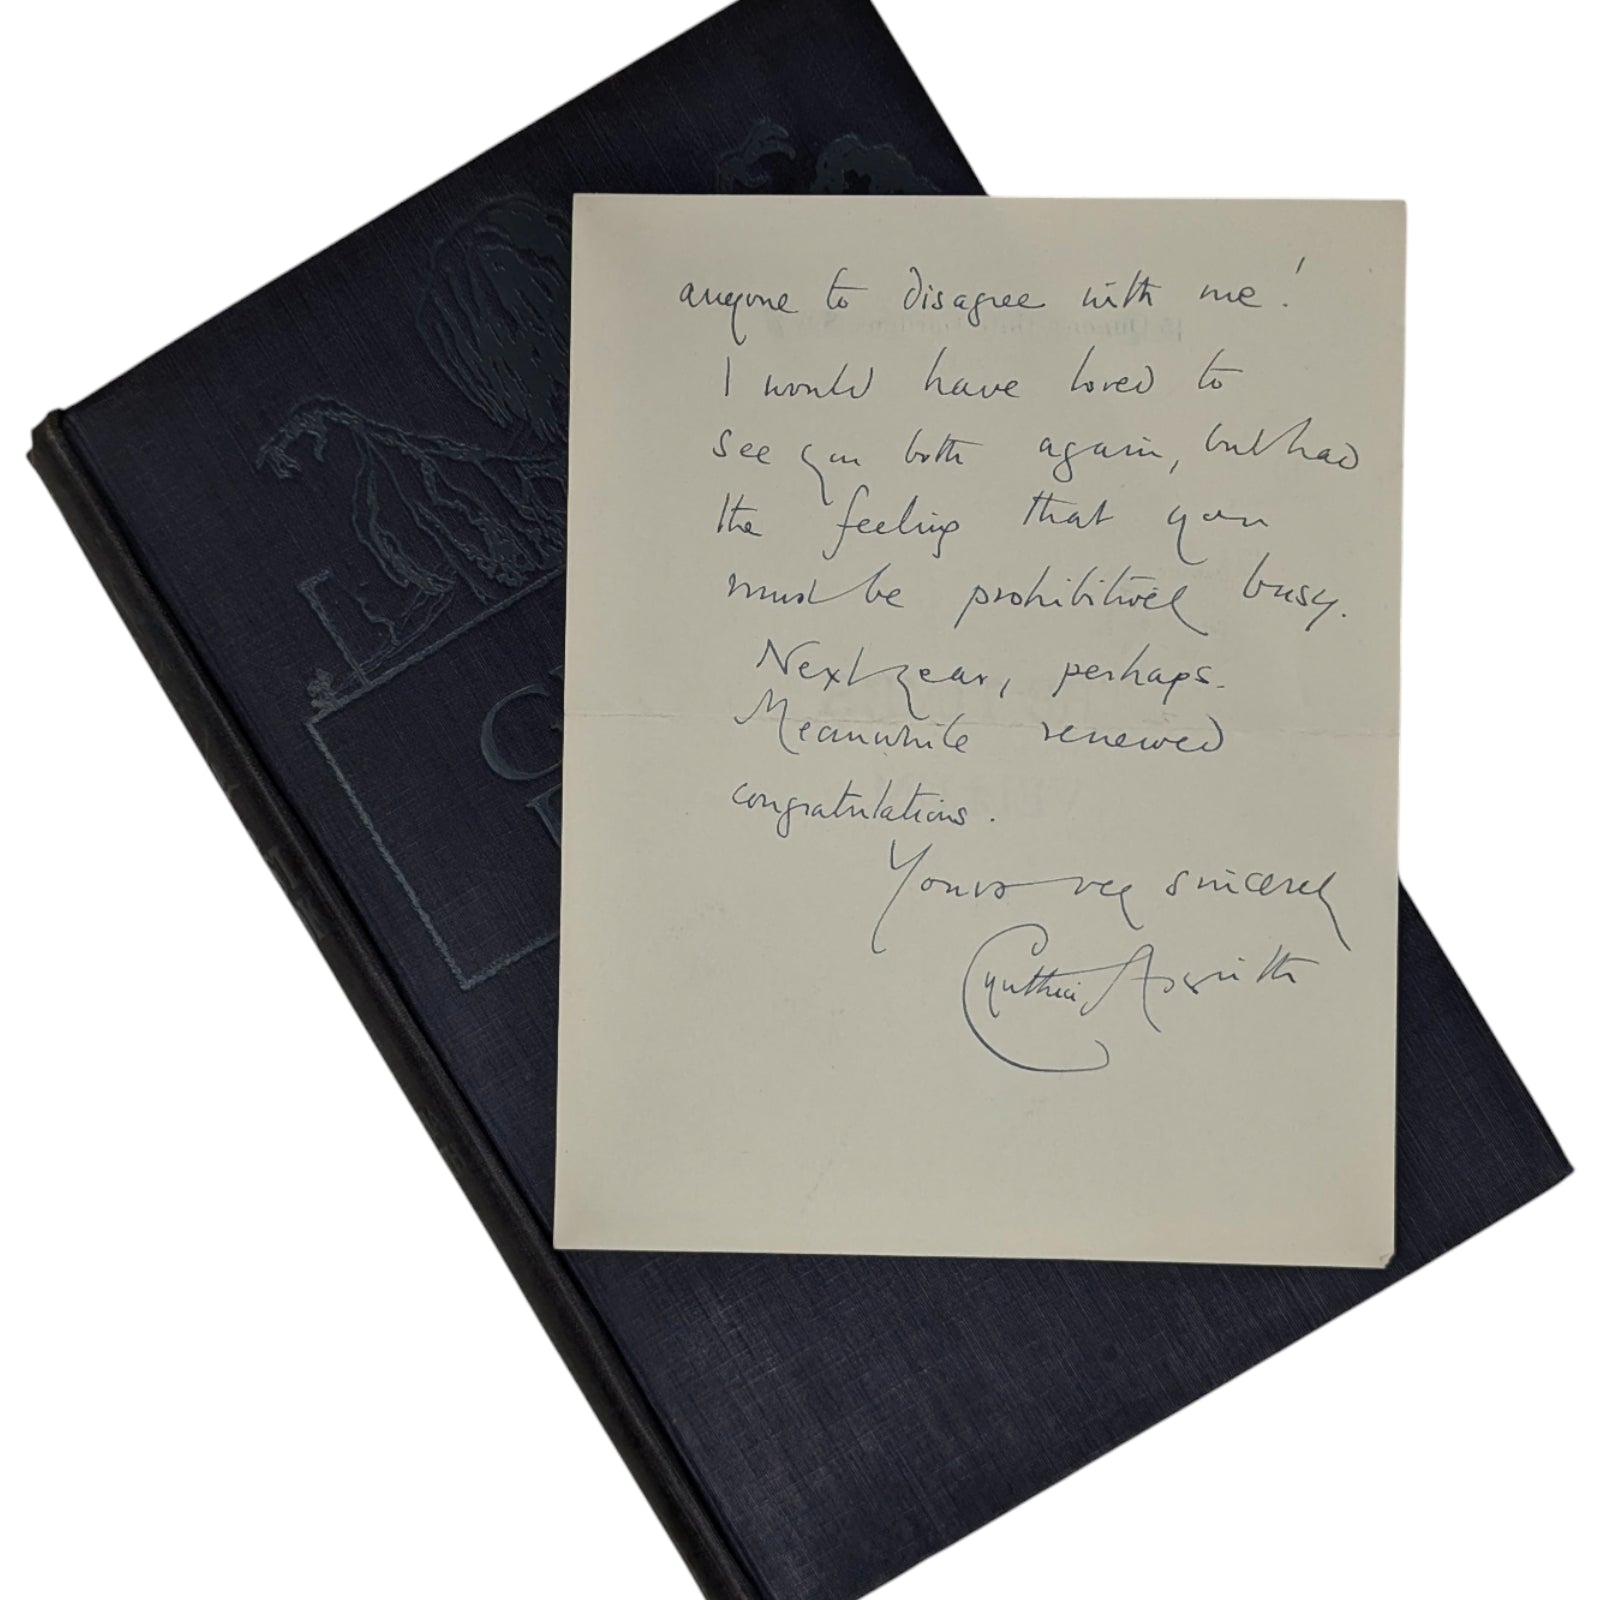 anyone to disagree with me!
I would have loved to
see you both again, but had
the feeling that you
must be prohibitively busy.
Next year, perhaps.
Meanwhile renewed
congratulations.
Yours very sincerely
Cynthia Asquith